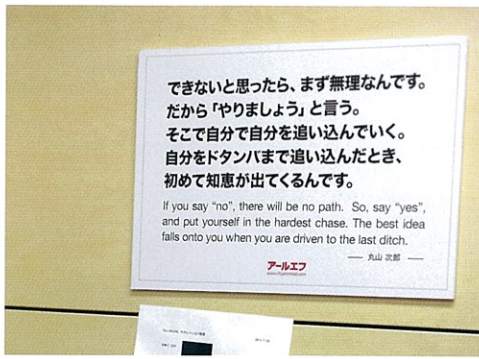 できないと思ったら、まず無理なんです。
だから「やりましょう」と言う。
そこで自分で自分を追い込んでいく。
自分をドタンバまで追い込んだとき、
初めて知恵が出てくるんです。
If you say “no”, there will be no path. So, say “yes”,
and put yourself in the hardest chase. The best idea
falls onto you when you are driven to the last ditch.
── 丸山 次郎 ──
アールエフ